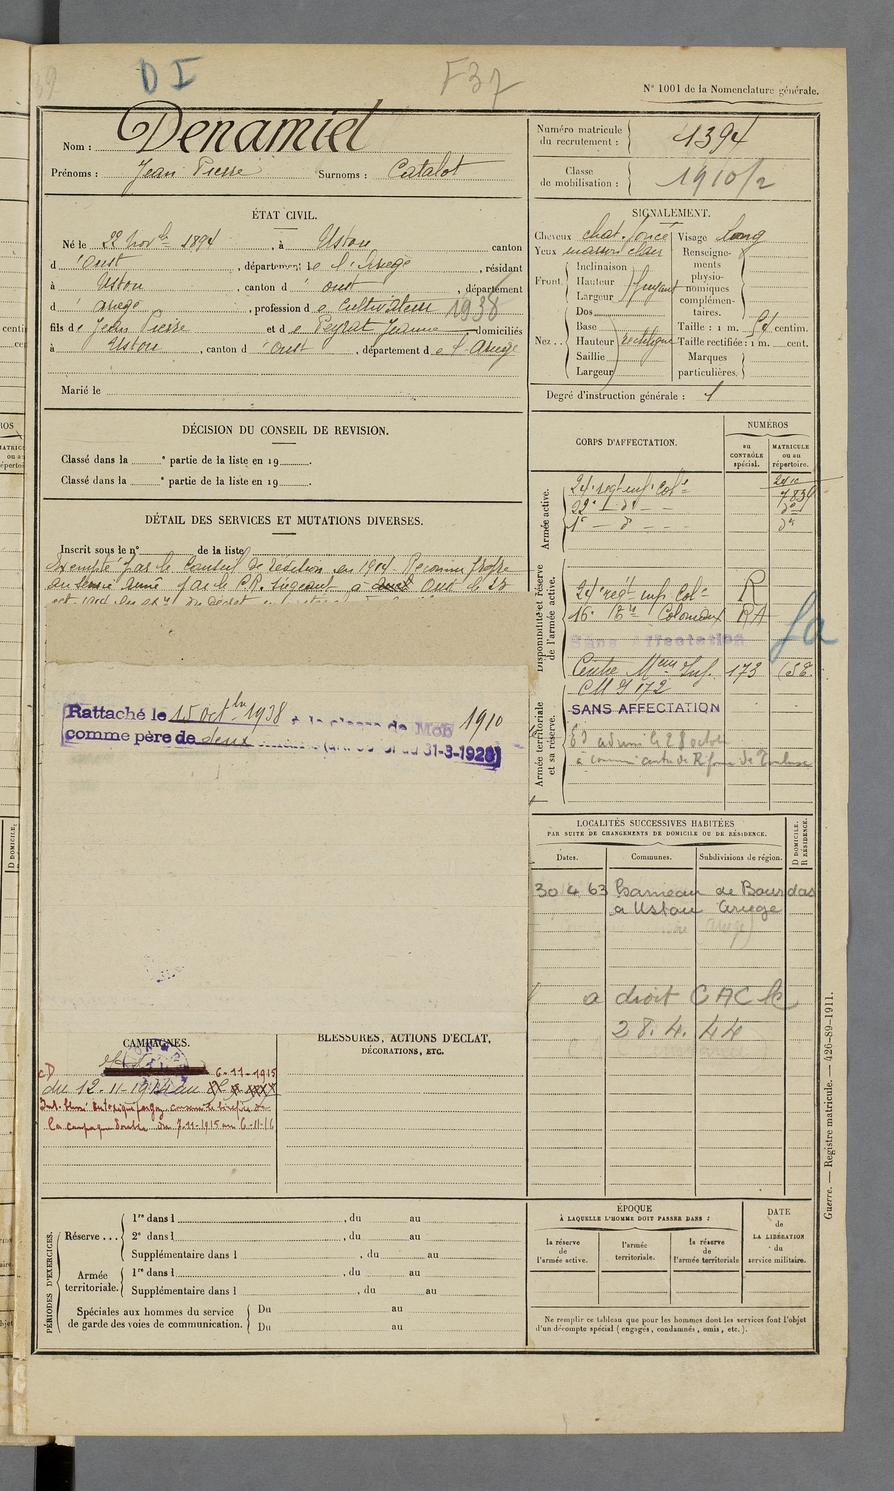 D I
F37
N° 1001 de la Nomenclature générale.
Nom : Denamiel
Prénoms : Jean Pierre Surnoms : Catalot
Numéro matricule du recrutement : 1394
Classe de mobilisation : 1910/2
ÉTAT CIVIL.
Né le 22 novbre 1894, à Ustou canton
d'Oust, département de l'Ariège, résidant
à Ustou, canton d'Oust, département
d'Ariège, profession de Cultivateur 1938
fils de Jean Pierre et de Peyrat Jeanne domiciliés
à Ustou, canton d'Oust, département de l'Ariège
Marié le
SIGNALEMENT.
Cheveux chat. foncé Visage long
Yeux marron clair
Renseignements physionomiques complémentaires.
Front. Inclinaison Hauteur Largeur fuyant
Nez .. Dos Base Hauteur Saillie Largeur rectiligne
Taille : 1 m. 54 centim.
Taille rectifiée : 1 m. cent.
Marques particulières.
Degré d'instruction générale : 1
DÉCISION DU CONSEIL DE REVISION.
Classé dans la e partie de la liste en 19 .
Classé dans la e partie de la liste en 19 .
DÉTAIL DES SERVICES ET MUTATIONS DIVERSES.
Inscrit sous le n° de la liste
Exempté par le Conseil de révision en 1914 Reconnu propre
au service armé par le CR. siégeant à Oust le
Rattaché le 15 octbre 1938 à la classe de Mob 1910
comme père de deux 31-3-1928)
CORPS D'AFFECTATION.
NUMÉROS
au CONTRÔLE spécial.
MATRICULE ou au répertoire.
Armée active.
24e régt infie Colle 7839
22e — d° — do
1er — d° — do
Disponibilité et réserve de l'armée active.
24e régt inf Colle R
16e Bon Coloniaux RA
Sans Affectation
fa
Centre Meun Inf. 173
CM I 172
Armée territoriale et sa réserve.
SANS AFFECTATION
LOCALITÉS SUCCESSIVES HABITÉES
PAR SUITE DE CHANGEMENTS DE DOMICILE OU DE RÉSIDENCE.
Dates. Communes. Subdivisions de région.
D DOMICILE. R RÉSIDENCE.
30 4 63 Hameau de Bourdas
a Ustou Ariege
a droit CAC le
28. 4. 44
CAMPAGNES.
CD 6-11-1915
du 12-11-1914 au
la campagne double du 7-11-1915 au 6-11-16
BLESSURES, ACTIONS D'ÉCLAT,
DÉCORATIONS, ETC.
PÉRIODES D'EXERCICES.
Réserve ... 1re dans l , du au
2e dans l , du au
Supplémentaire dans l , du au
Armée territoriale. 1re dans l , du au
Supplémentaire dans l , du au
Spéciales aux hommes du service de garde des voies de communication. Du au
Du au
ÉPOQUE
À LAQUELLE L'HOMME DOIT PASSER DANS :
la réserve de l'armée active.
l'armée territoriale.
la réserve de l'armée territoriale
DATE de LA LIBÉRATION du service militaire.
Ne remplir ce tableau que pour les hommes dont les services font l'objet
d'un décompte spécial (engagés, condamnés, omis, etc.).
Guerre. — Registre matricule. — 426-89-1911.